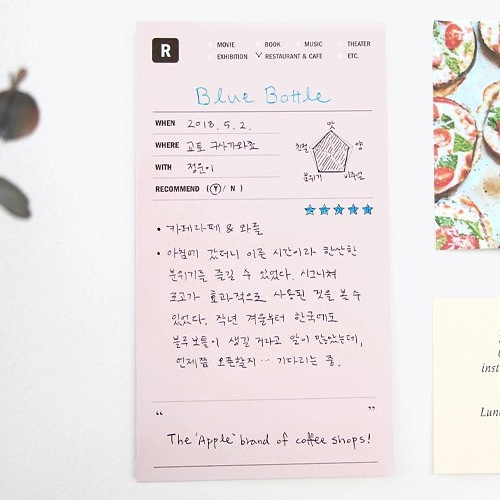 R
MOVIE BOOK MUSIC THEATER
EXHIBITION RESTAURANT & CAFE ETC.
Blue Bottle
WHEN 2018. 5. 2.
WHERE 교토
WITH 정윤이
RECOMMEND (Y / N )
맛
친절 양
분위기 비주얼
• 카페라떼 & 와플
• 아침에 갔더니 이른 시간이라 한산한
분위기를 즐길 수 있었다. 시그니쳐
로고가 효과적으로 사용된 것을 볼 수
있었다. 작년 겨울부터 한국에도
블루보틀이 생길 거라고 말이 많았는데,
언제쯤 오픈할지 … 기다리는 중.
“ ”
The 'Apple' brand of coffee shops!
inst
Lun